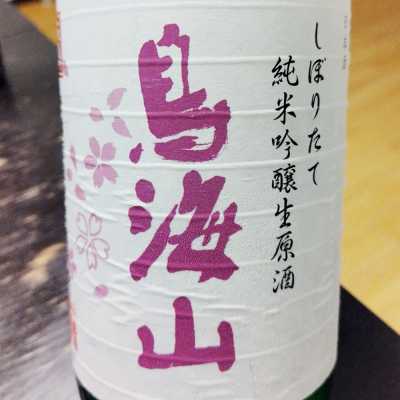 しぼりたて
純米吟醸生原酒
鳥海山